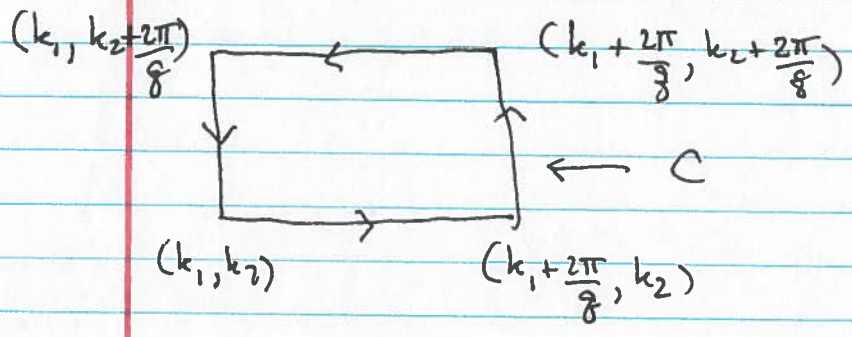 (k₁, k₂+2π/q)
(k₁+2π/q, k₂+2π/q)
C
(k₁, k₂)
(k₁+2π/q, k₂)